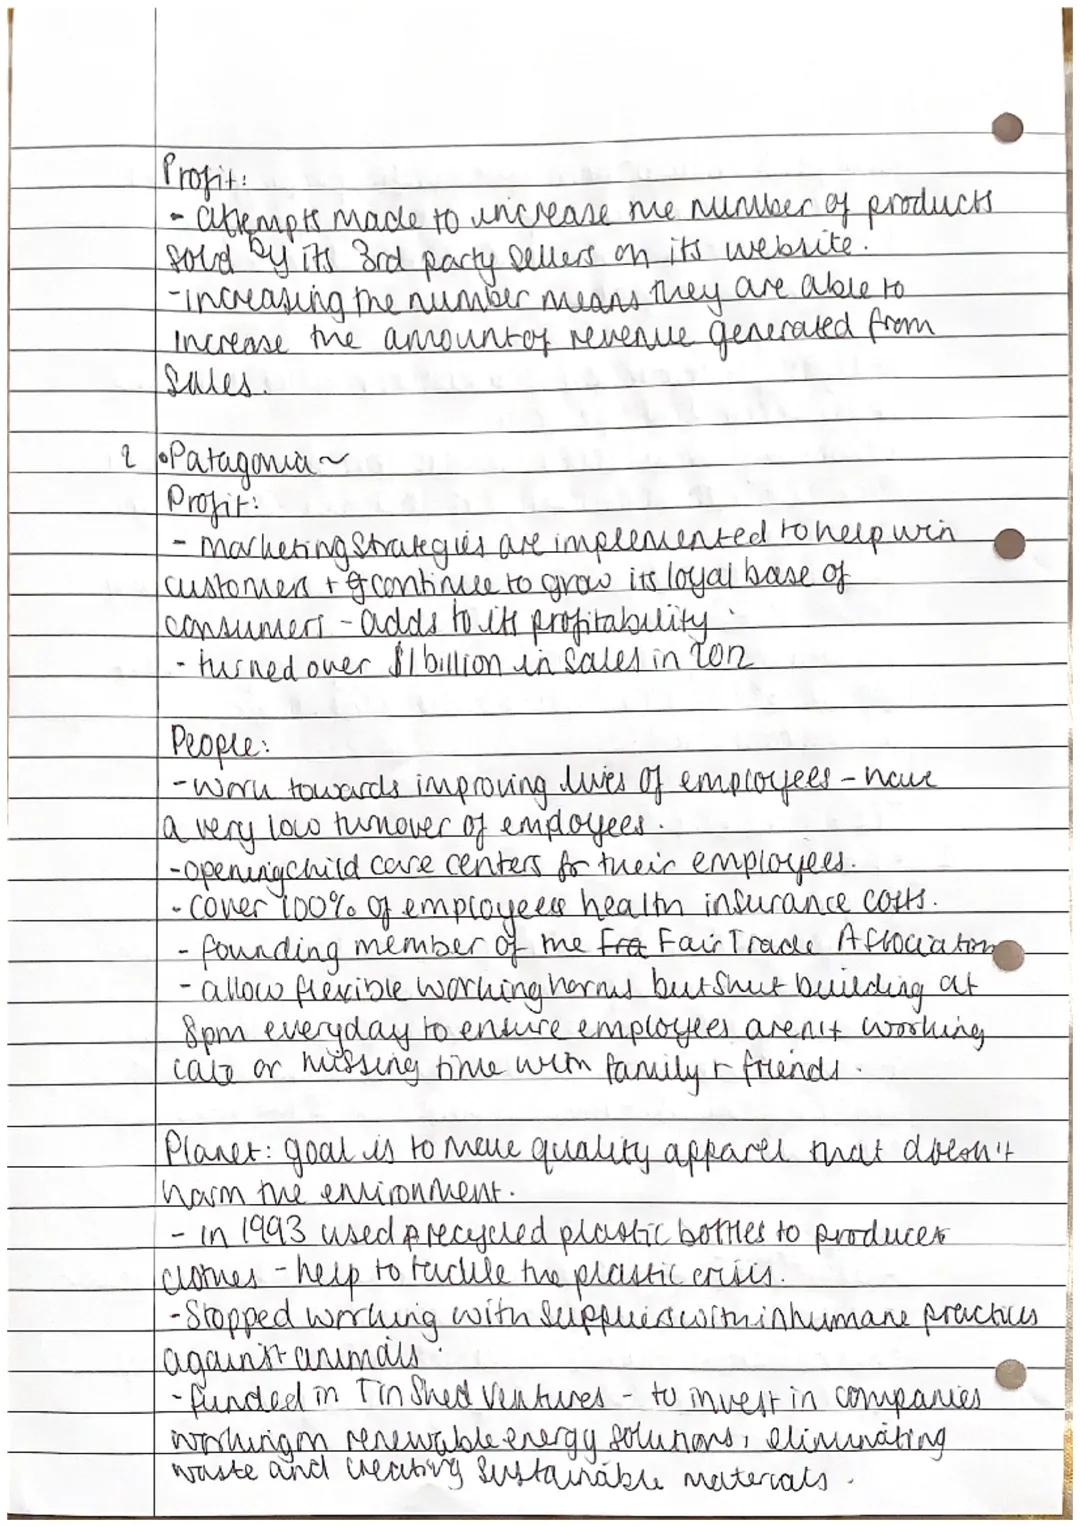 Profit:
- attempts made to increase the number of products
sold by its 3rd party sellers on its website.
- increasing the number means they are able to
increase the amount of revenue generated from
sales.
2 •Patagonia~
Profit:
- marketing strategies are implemented to help win
customers + continue to grow its loyal base of
consumers - adds to its profitability.
- turned over $1 billion in sales in 2012
People:
- work towards improving lives of employees - have
a very low turnover of employees.
- opening child care centers for their employees.
- cover 100% of employees health insurance costs.
- founding member of the Fra Fair Trade Association
- allow flexible working hours but shut building at
8pm everyday to ensure employees aren't working
late or missing time with family + friends.
Planet: goal is to make quality apparel that doesn't
harm the environment.
- in 1993 used recycled plastic bottles to produce
clothes - help to tackle the plastic crisis.
- Stopped working with suppliers with inhumane practices
against animals.
- funded in Tin Shed Ventures - to invest in companies
working on renewable energy solutions, eliminating
waste and creating sustainable materials.